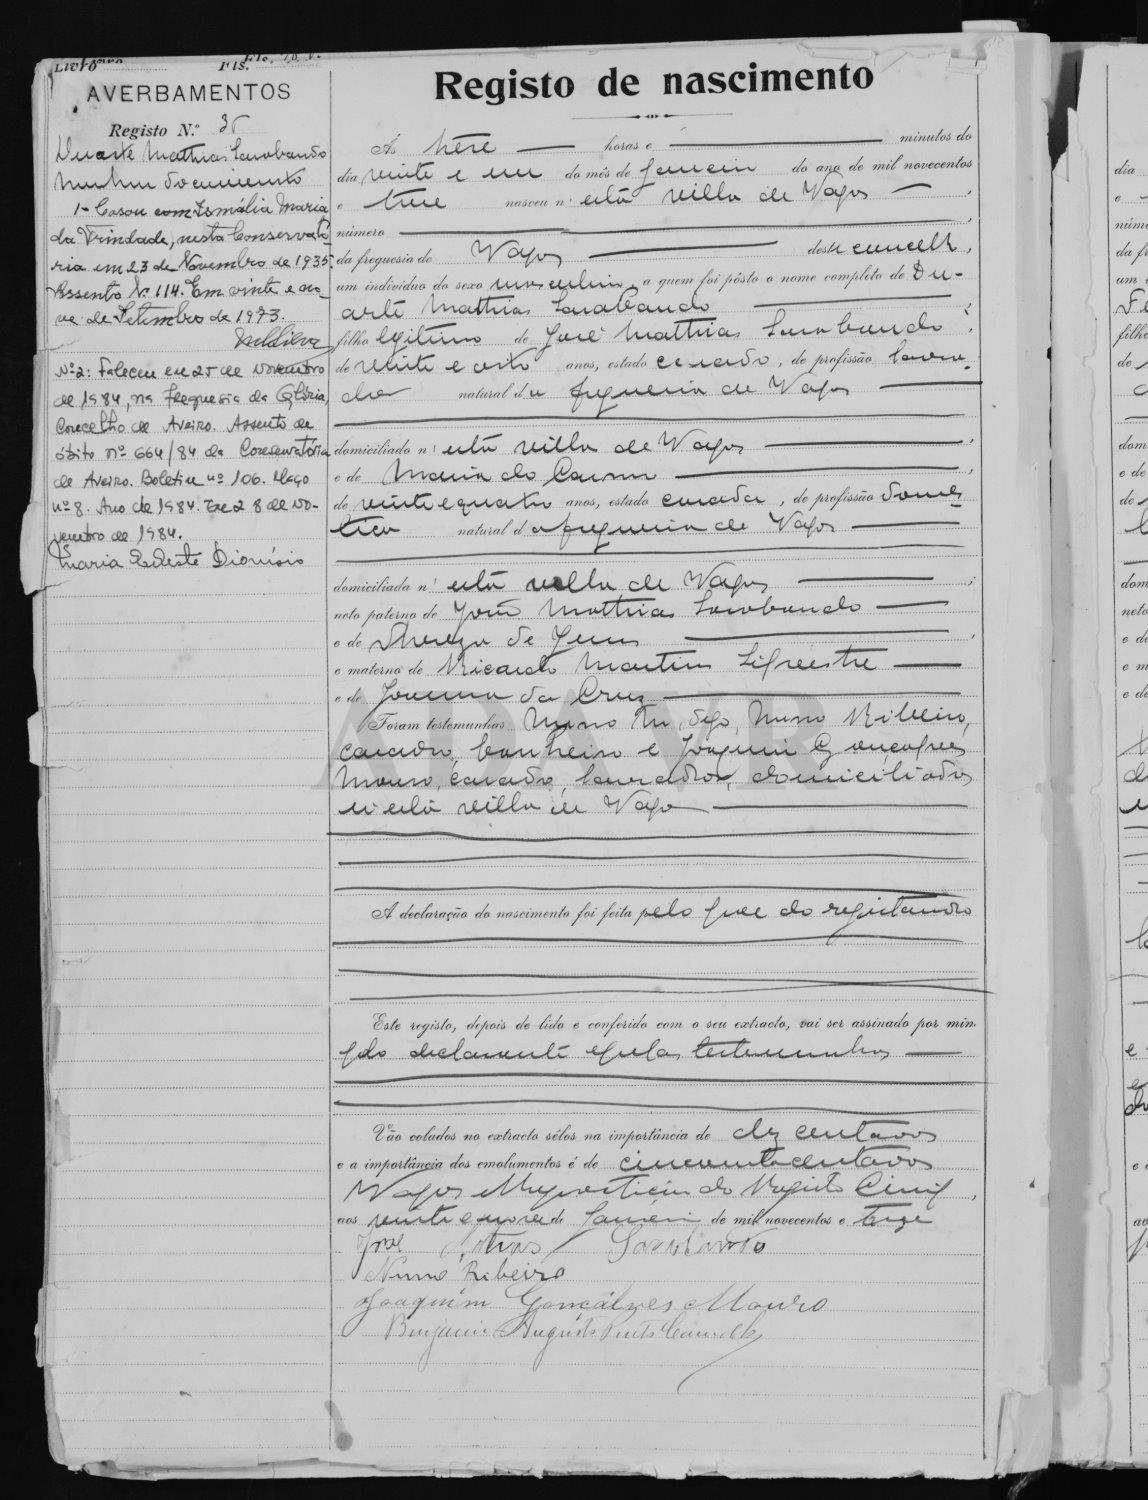 Livro
Fls.
AVERBAMENTOS
Registo N.º 35
Duarte Mathias Sarabando
Nenhum documento
1- Casou com Ismália Maria
da Trindade, nesta Conservató-
ria em 23 de Novembro de 1935.
Assento N.º 114. Em vinte e no-
ve de Setembro de 1973.
Nº 2: Faleceu em 25 de Novembro
de 1984, na freguesia da Glória,
Concelho de Aveiro. Assento de
óbito nº 664/84 da Conservatória
de Aveiro. Boletim nº 106. Maço
nº 8. Ano de 1984. Em 28 de No-
vembro de 1984.
Maria Celeste Dionísio
Registo de nascimento
Ás treze horas e minutos do
dia vinte e um do mês de Janeiro do ano de mil novecentos
e treze nasceu n'esta villa de Vagos,
número
da freguesia de Vagos deste concelho,
um indivíduo do sexo masculino, a quem foi pôsto o nome completo de Du-
arte Mathias Sarabando;
filho legitimo de José Mathias Sarabando
de vinte e oito anos, estado casado, de profissão lavra-
dor natural da freguesia de Vagos
domiciliado n'esta villa de Vagos,
e de Maria do Carmo,
de vinte e quatro anos, estado casada, de profissão domes-
tica natural da freguesia de Vagos
domiciliada n'esta villa de Vagos;
neto paterno de João Mathias Sarabando
e de Thereza de Jesus,
e materno de Ricardo Martins Silvestre
e de Joanna da Cruz
Foram testemunhas Nuno Ribeiro,
casado, banheiro e Joaquim Gonçalves
Mouro, casado, lavrador, domiciliados
n'esta villa de Vagos
ADAVR
A declaração do nascimento foi feita pelo pae do registando
Este registo, depois de lido e conferido com o seu extracto, vai ser assinado por mim,
pelo declarante e pelas testemunhas
Vão colados no extracto sêlos na importância de dez centavos
e a importância dos emolumentos é de cincoenta centavos
Vagos e Repartição do Registo Civil,
aos vinte e nove de Janeiro de mil novecentos e treze
José Matias Sarabando
Nuno Ribeiro
Joaquim Gonçalves Mouro
Benjamim Augusto